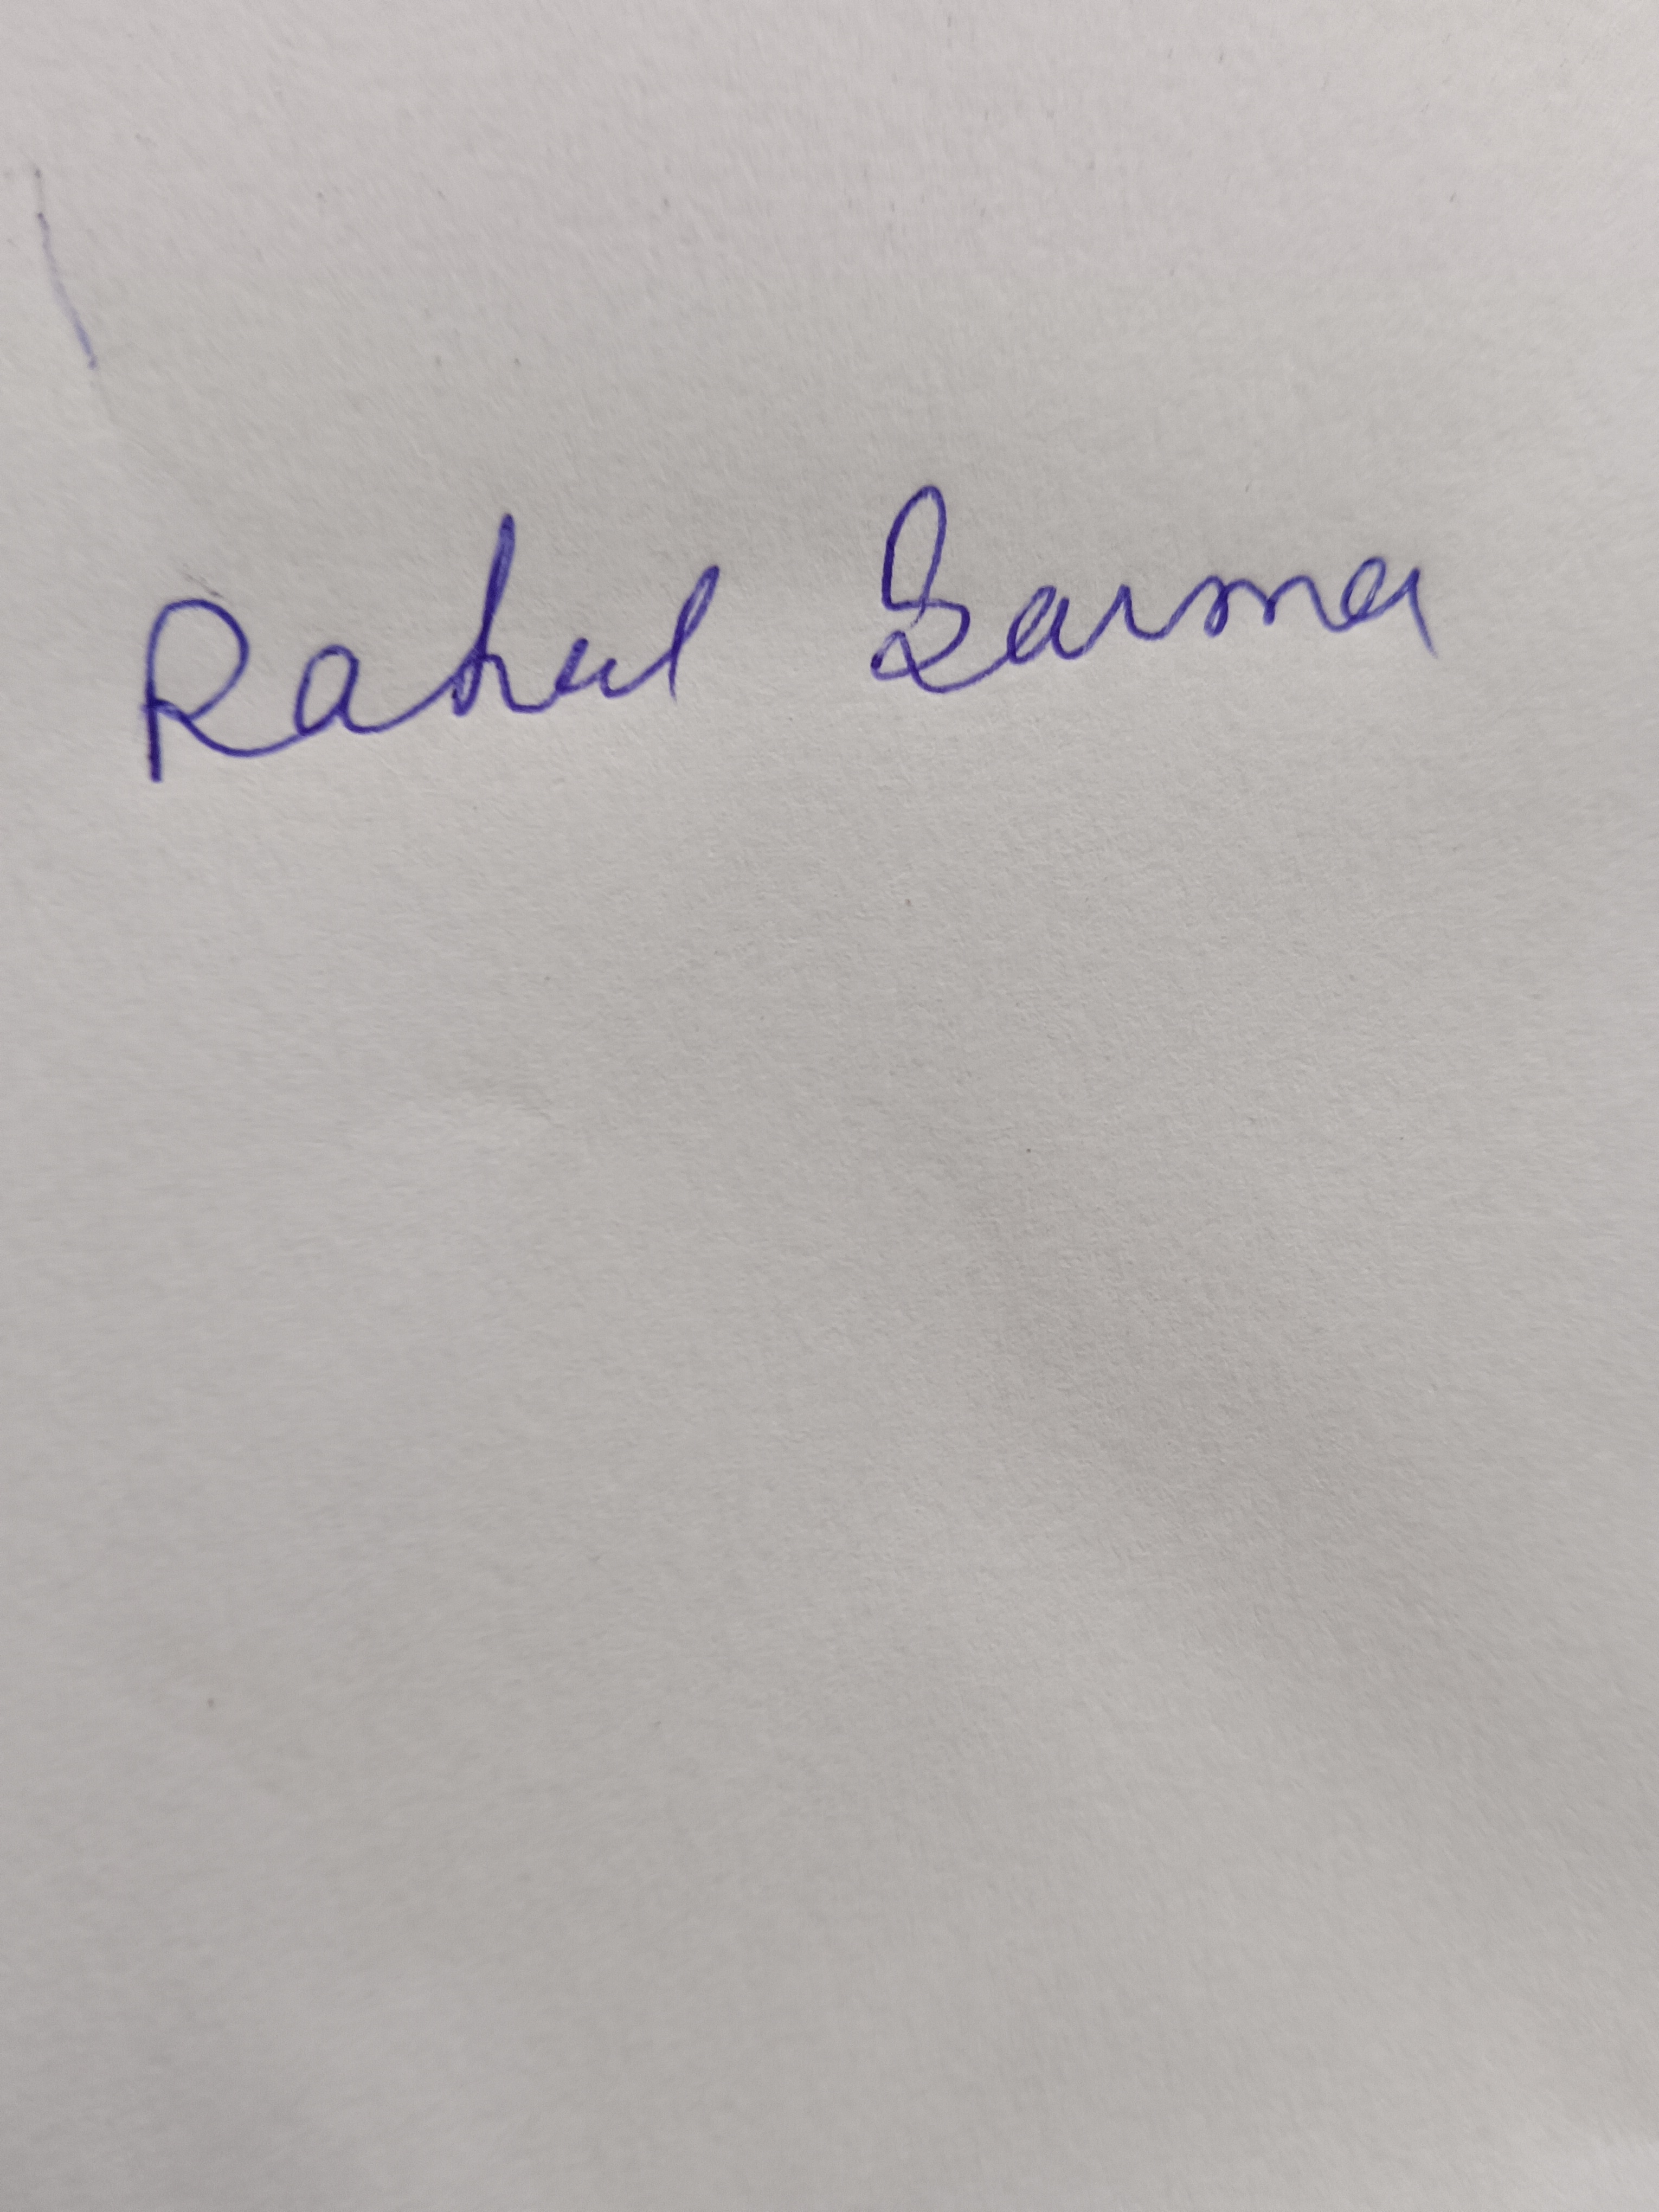 Rahul Sarma